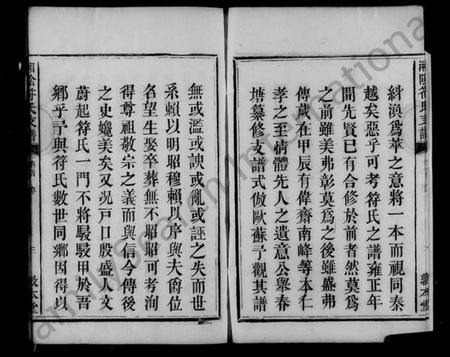 湘陰符氏支譜
糾渙為萃之意將一本而視同秦
越矣惡乎可考符氏之譜雍正年
間先賢已有合修於前者然莫為
之前雖美弗彰莫為之後雖盛弗
傳歲在甲辰有偉齋南峰等本仁
孝之至情體先人之遺意公舉春
塘纂修支譜式倣歐蘇予觀其譜
敦本堂
無或濫或諛或亂或誣之失而世
系賴以明昭穆賴以序與夫爵位
名望生娶卒葬無不昭昭可考洵
得尊祖敬宗之義而與信今傳後
之史媲美矣又況戶口殷盛人文
蔚起符氏一門不將駸駸甲於吾
鄉乎予與符氏數世同鄉因得以
湘陰符氏支譜
敦本堂